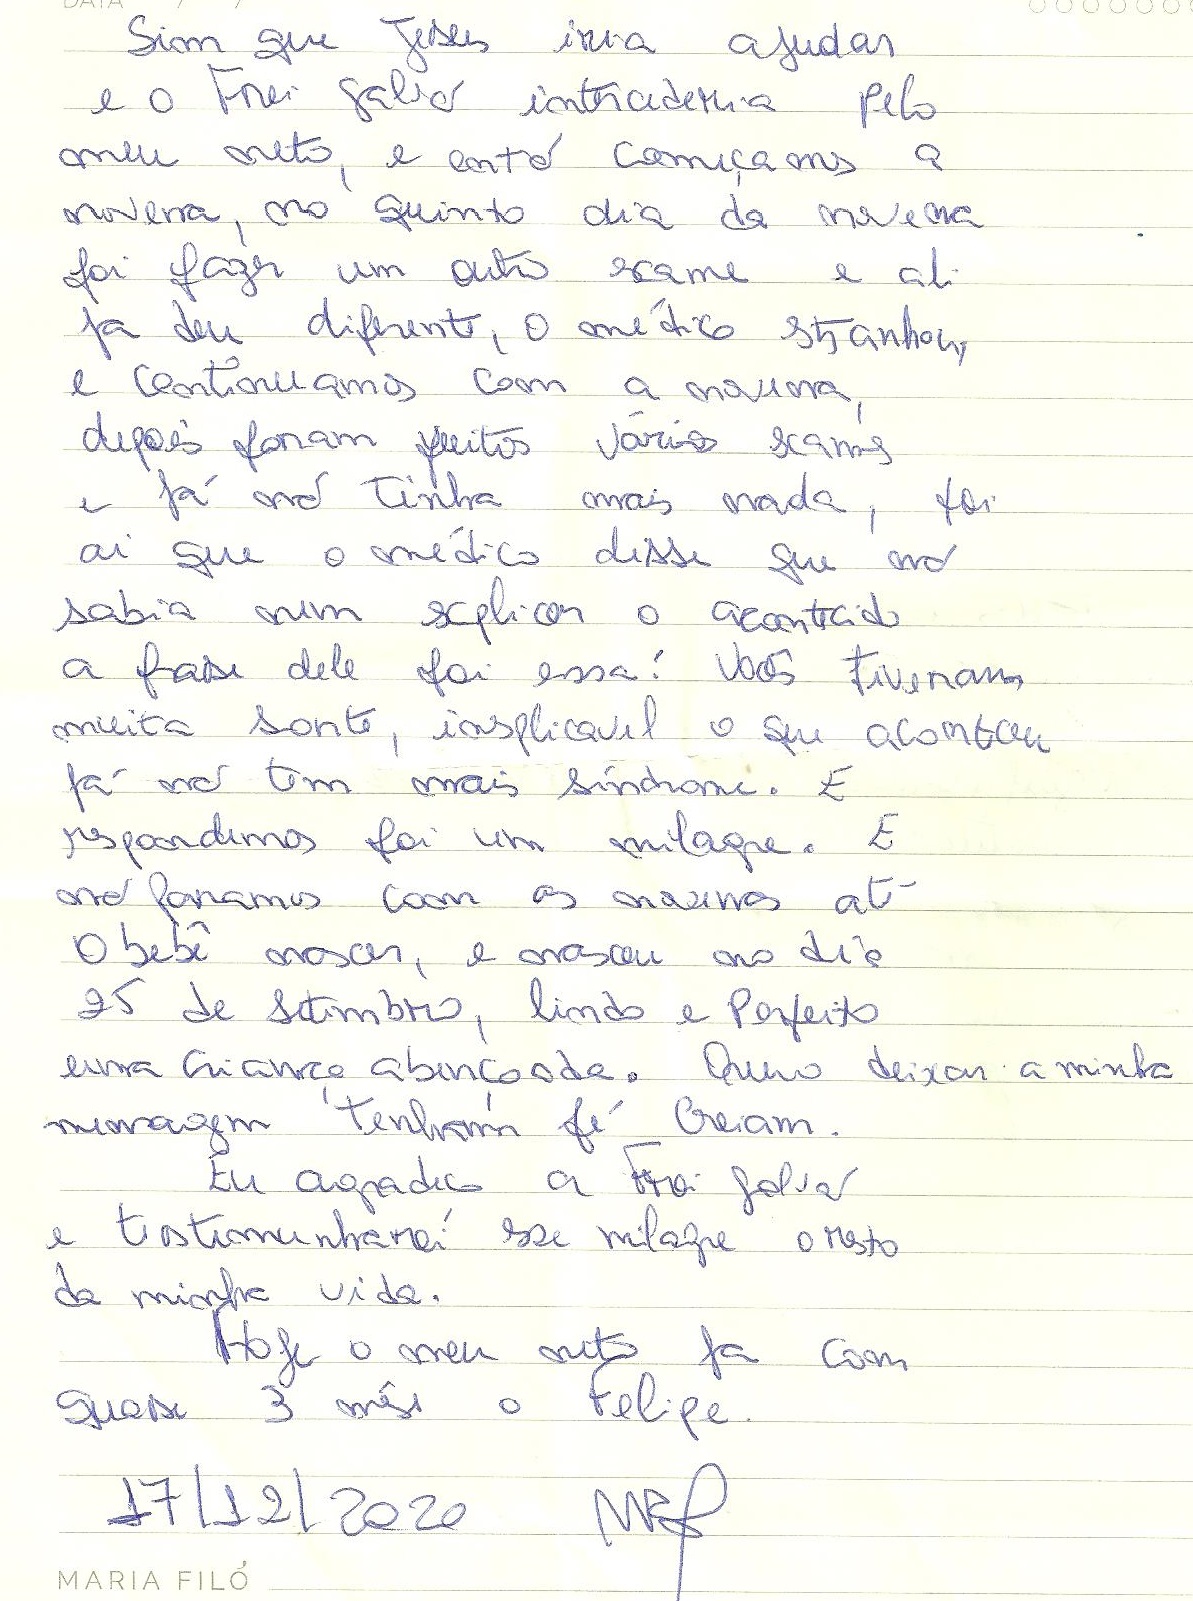 DATA / /
Sim que Jesus iria ajudar
e o Frei Galvão intercederia pelo
meu neto, e então começamos a
novena, no quinto dia da novena
foi fazer um outro exame e ali
ja deu diferente, o médico stranhou,
e continuamos com a novena,
depois foram feitos vários exames
e já não tinha mais nada, foi
ai que o médico disse que não
sabia nem explicar o acontecido
a frase dele foi essa: Vocês tiveram
muita sorte, inesplicavel o que aconteceu
já não tem mais síndrome. E
respondemos foi um milagre. E
não paramos com as novenas até
O bebê nascer, e nasceu no dia
25 de setembro, lindo e Perfeito
uma criança abençoada. Quero deixar a minha
mensagem tenham fé Creiam.
Eu agradeco a Frei Galvão
e testemunharei esse milagre o resto
da minha vida.
Hoje o meu neto ja com
quase 3 mêses o Felipe.
17/12/2020
MARIA FILÓ